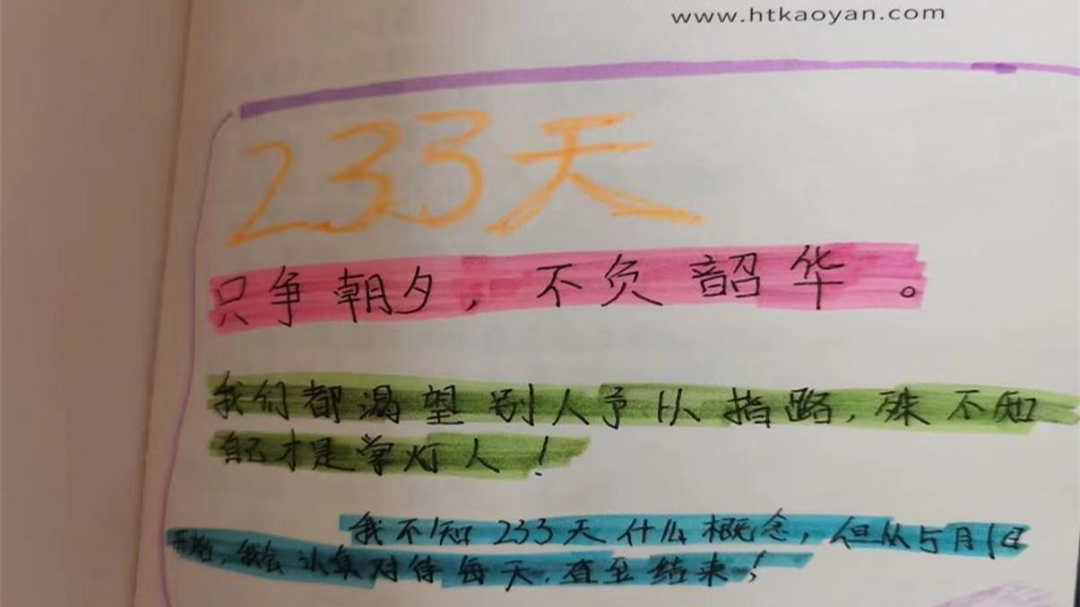 www.htkaoyan.com
233天
只争朝夕，不负韶华。
我们都渴望别人予以指路，殊不知
自己才是掌灯人！
我不知233天什么概念，但从5月1日
开始，我会认真对待每天，直至结束！